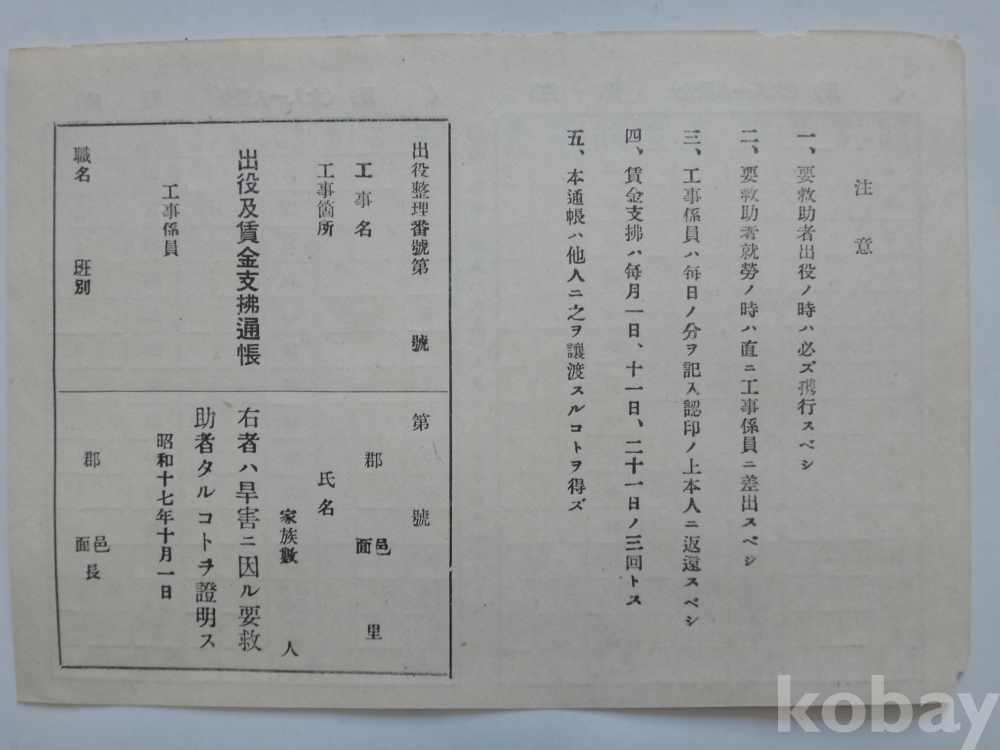 注意
一、要救助者出役ノ時ハ必ズ携行スベシ
二、要救助者就勞ノ時ハ直ニ工事係員ニ差出スベシ
三、工事係員ハ每日ノ分ヲ記入認印ノ上本人ニ返還スベシ
四、賃金支拂ハ每月一日、十一日、二十一日ノ三回トス
五、本通帳ハ他人ニ之ヲ讓渡スルコトヲ得ズ
出役整理番號第 號
工事名
工事箇所
出役及賃金支拂通帳
工事係員
職名 班別
第 號
郡 邑面 里
氏名
家族數 人
右者ハ旱害ニ因ル要救
助者タルコトヲ證明ス
昭和十七年十月一日
郡 邑面長
kobay